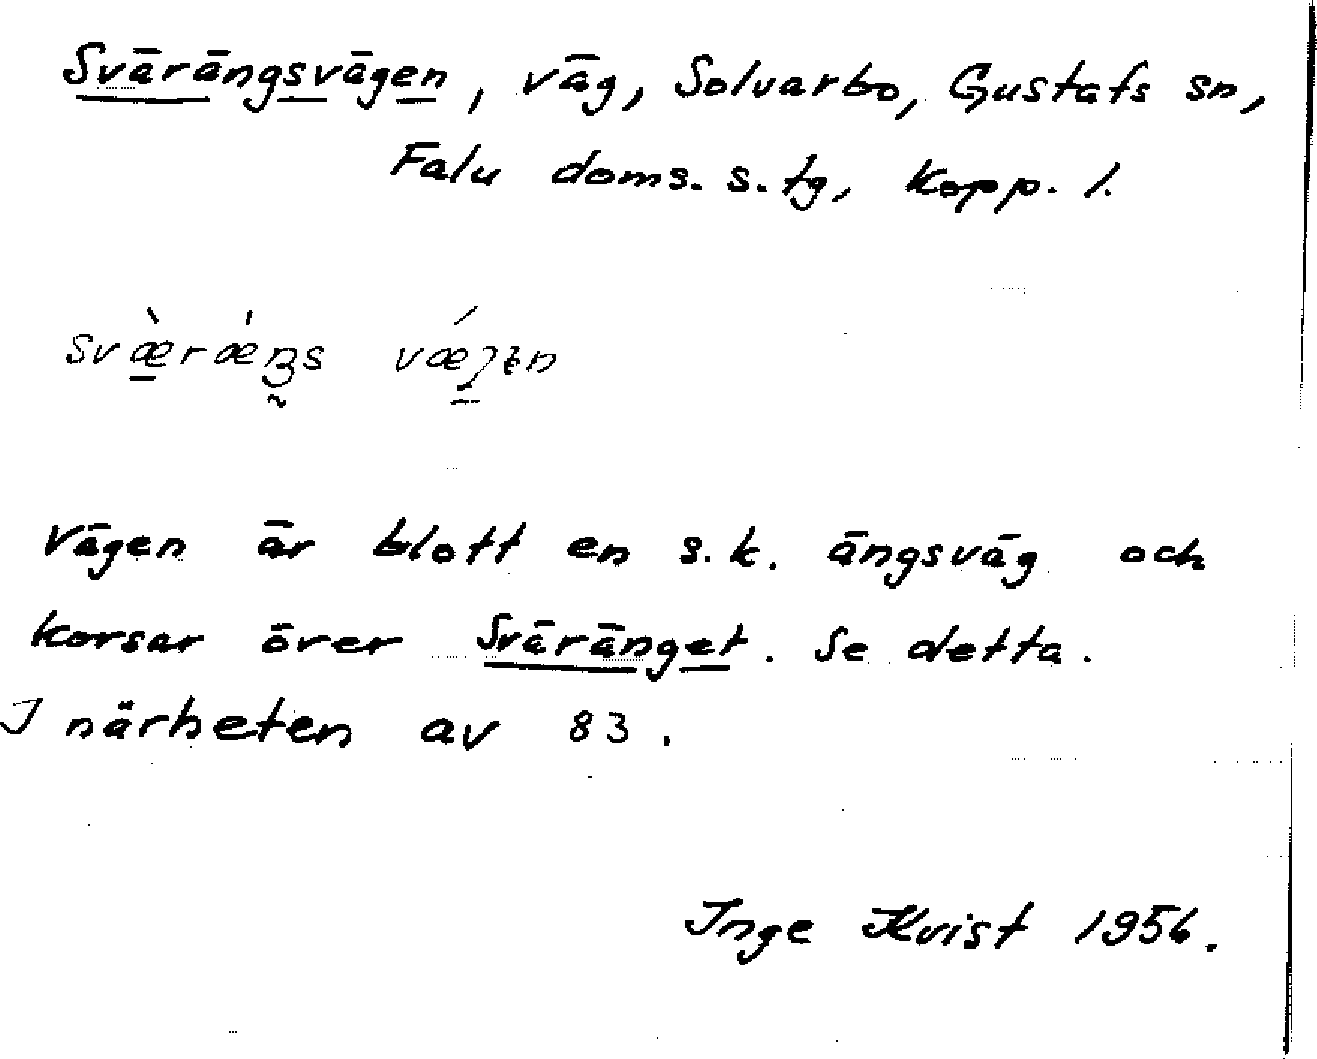 Svärängsvägen, väg, Solvarbo, Gustafs sn,
Falu doms. s. tg, Kopp. l.
svæ̀rǽŋs vǽjen
Vägen är blott en s.k. ängsväg och
korsar över Sväränget. Se detta.
I närheten av 83.
Inge Kvist 1956.